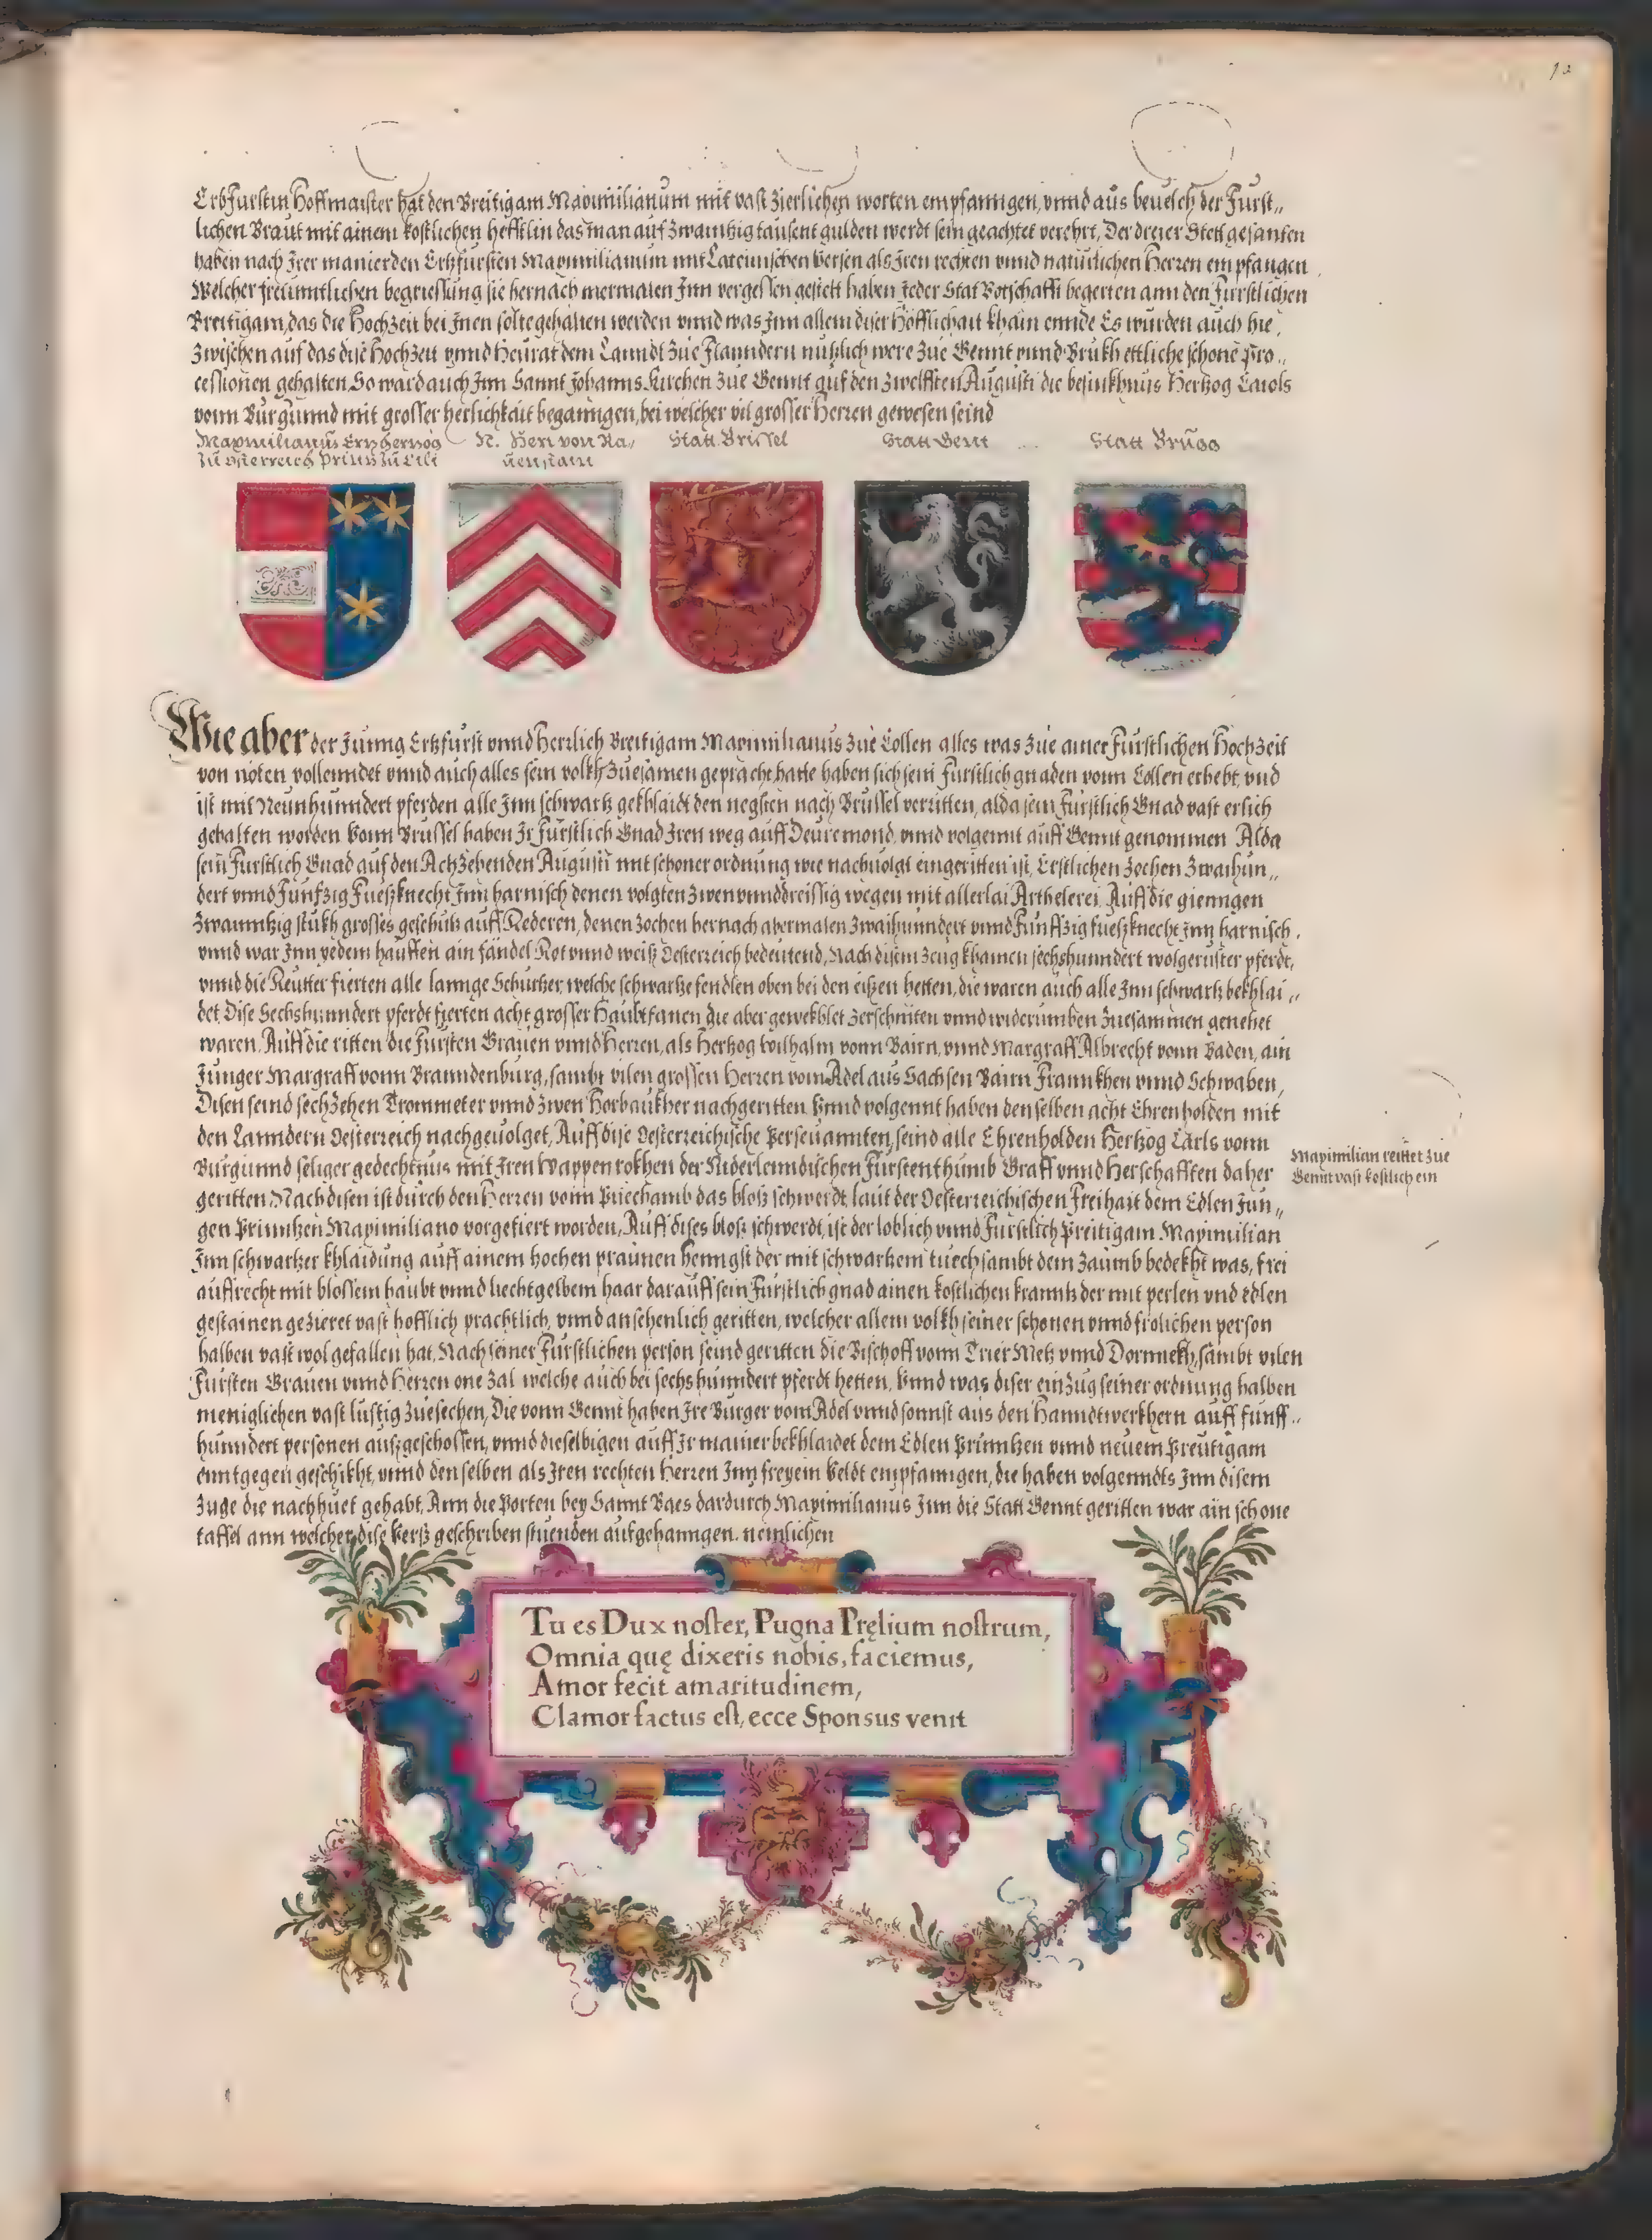 12
Erbfurstin Hoffmaister hat den Breitigam Maximilianum mit vast zierlichen worten empfanngen, vnnd aus beuelch der Furst„
lichen Braut mit ainem kostlichen hefftlin das man auf zwaintzig tausent gulden werdt sein geachtet verehrt, Der dreier Stett gesanten
haben nach Irer manier den Ertzfursten Maximilianum mit Lateinischen Versen als Iren rechten vnnd naturlichen Herren empfangen
Welcher freuntlichen begruessung sie hernach mermalen Inn vergessen gestelt haben Jeder Stat Botschafft begerten ann den Furstlichen
Breitigam, das die Hochzeit bei Inen solte gehalten werden vnnd was Inn allem diser Höfflichait khain ennde Es wurden auch hie
zwischen auf das dise Hochzeit vnnd Heurat dem Lanndt zue Flanndern nutzlich were zue Gennt vnnd Brukh ettliche schone pro„
cessionen gehalten. So ward auch Inn Sannt Johanns Kirchen zue Gennt auf den zwelfften Augusti die besinkhnus Hertzog Carols
vonn Burgunnd mit grosser herlichkait beganngen, bei welcher vil grosser Herren gewesen seind
Maximilianus Ertzhertzog
zu Osterreich Printz zu Cili
N. Herr von Ra„
uenstain
Statt Brissel
Statt Gent
Statt Brugg
Wie aber der Junng Ertzfurst vnnd Herrlich Breitigam Maximilianus zue Collen alles was zue ainer Furstlichen Hochzeit
von nöten vollenndet vnnd auch alles sein volkh zuesamen gepracht hatte haben sich sein furstlich gnaden vonn Collen erhebt, vnd
ist mit Neunhunndert pferden alle Inn schwartz gekhlaidt den negsten nach Brussel verritten, alda sein Furstlich Gnad vast erlich
gehalten worden Vonn Brussel haben Ir Furstlich Gnad Iren weg auff Deuremond, vnnd volgennt auff Gennt genommen Alda
sein Furstlich Gnad auf den Achzehenden Augusti mit schoner ordnung wie nachuolgt eingeritten ist, Erstlichen zochen zwaihun„
dert vnnd Funfzig Fueszknecht Inn harnisch denen volgten zwen vnnddreissig wegen mit allerlai Arthelerei Auff die gienngen
zwaintzig stukh grosses geschutz auff Rederen, denen zochen hernach abermalen zwaihunndert vnnd Funffzig fueszknecht Inn harnisch,
vnnd war Inn yedem hauffen ain fändel Rot vnnd weisz Oesterreich bedeutend, Nach disem zeug khamen sechshunndert wolgeruster pferdt,
vnnd die Reutter fierten alle lannge Schurtzer, welche schwartze fendlen oben bei den eisen hetten, die waren auch alle Inn schwartz bekhlai„
det Dise Sechshunndert pferdt fierten acht grosser Haubtfanen die aber gewekhlet zerschniten vnnd widerumben zuesammen genehet
waren. Auff die ritten die Fursten Grauen vnnd Herren, als Hertzog Wilhalm vonn Bairn, vnnd Margraff Albrecht vonn Baden, ain
Junger Margraff vonn Branndenburg, sambt vilen grossen Herren vom Adel aus Sachsen Bairn Frannkhen vnnd Schwaben,
Disen seind sechzehen Trommeter vnnd zwen Horbaukher nachgeritten Vnnd volgennt haben denselben acht Ehrenholden mit
den Lanndern Oesterreich nachgeuolget, Auff dise Oesterreichische Perseuannten, seind alle Ehrenholden Hertzog Carls vonn
Burgunnd seliger gedechtnus mit Iren Wappenrokhen der Niderlenndischen Furstenthumb Graff vnnd Herschafften daher
geritten Nach disen ist durch den Herren vonn Puechamb das blosz schwerdt, laut der Oesterreichischen Freihait dem Edlen Jun„
gen Printzen Maximiliano vorgefiert worden, Auff dises blosz schwerdt, ist der loblich vnnd Furstlich Preitigam Maximilian
Inn schwartzer khlaidung auff ainem hochen praunen henngst der mit schwartzem tuech sambt dem zaumb bedekht was, frei
auffrecht mit blossem haubt vnnd liechtgelbem haar darauff sein Furstlich gnad ainen kostlichen kranntz der mit perlen vnd edlen
gestainen gezieret vast hofflich prachtlich, vnnd ansehenlich geritten, welcher allem volkh seiner schonen vnnd frolichen person
halben vast wol gefallen hat, Nach seiner Furstlichen person seind geritten die Bischoff vonn Trier Metz vnnd Dornnekh, sambt vilen
Fursten Grauen vnnd Herren one zal welche auch bei sechshunndert pferdt hetten, Vnnd was diser einzug seiner ordnung halben
meniglichen vast lustig zuesechen, Die vonn Gennt haben Ire Burger vom Adel vnnd sonnst aus den Hanndtwerkhern auff funff„
hunndert personen auszgeschossen, vnnd dieselbigen auff Ir manier bekhlaidet dem Edlen Printzen vnnd neuem Preutigam
enntgegen geschikht, vnnd denselben als Iren rechten Herren Inn freyem Veldt empfanngen, die haben volgenndts Inn disem
zuge die nachhuet gehabt, Ann die Porten bey Sannt Baes dardurch Maximilianus Inn die Statt Gennt geritten war ain schone
taffel ann welcher dise Versz geschriben stuenden aufgehanngen. nemlichen
Maximilian reittet zue
Gennt vast kostlich ein
Tu es Dux noster, Pugna Pręlium nostrum,
Omnia quę dixeris nobis, faciemus,
Amor fecit amaritudinem,
Clamor factus est, ecce Sponsus venit